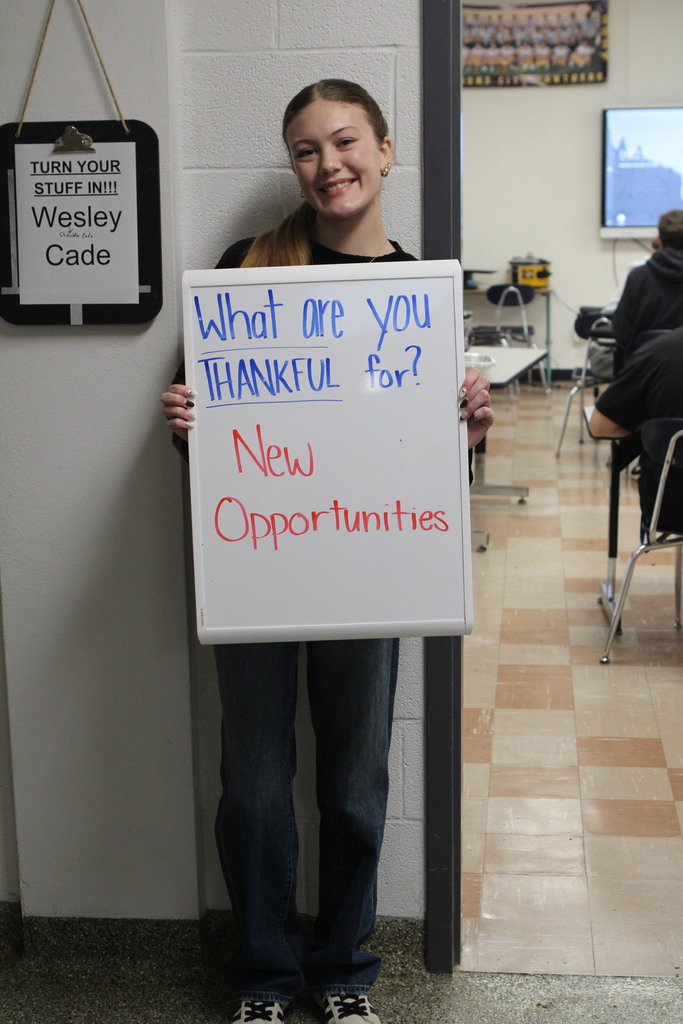 TURN YOUR
STUFF IN!!!
Wesley
Cade
What are you
THANKFUL for?
New
Opportunities